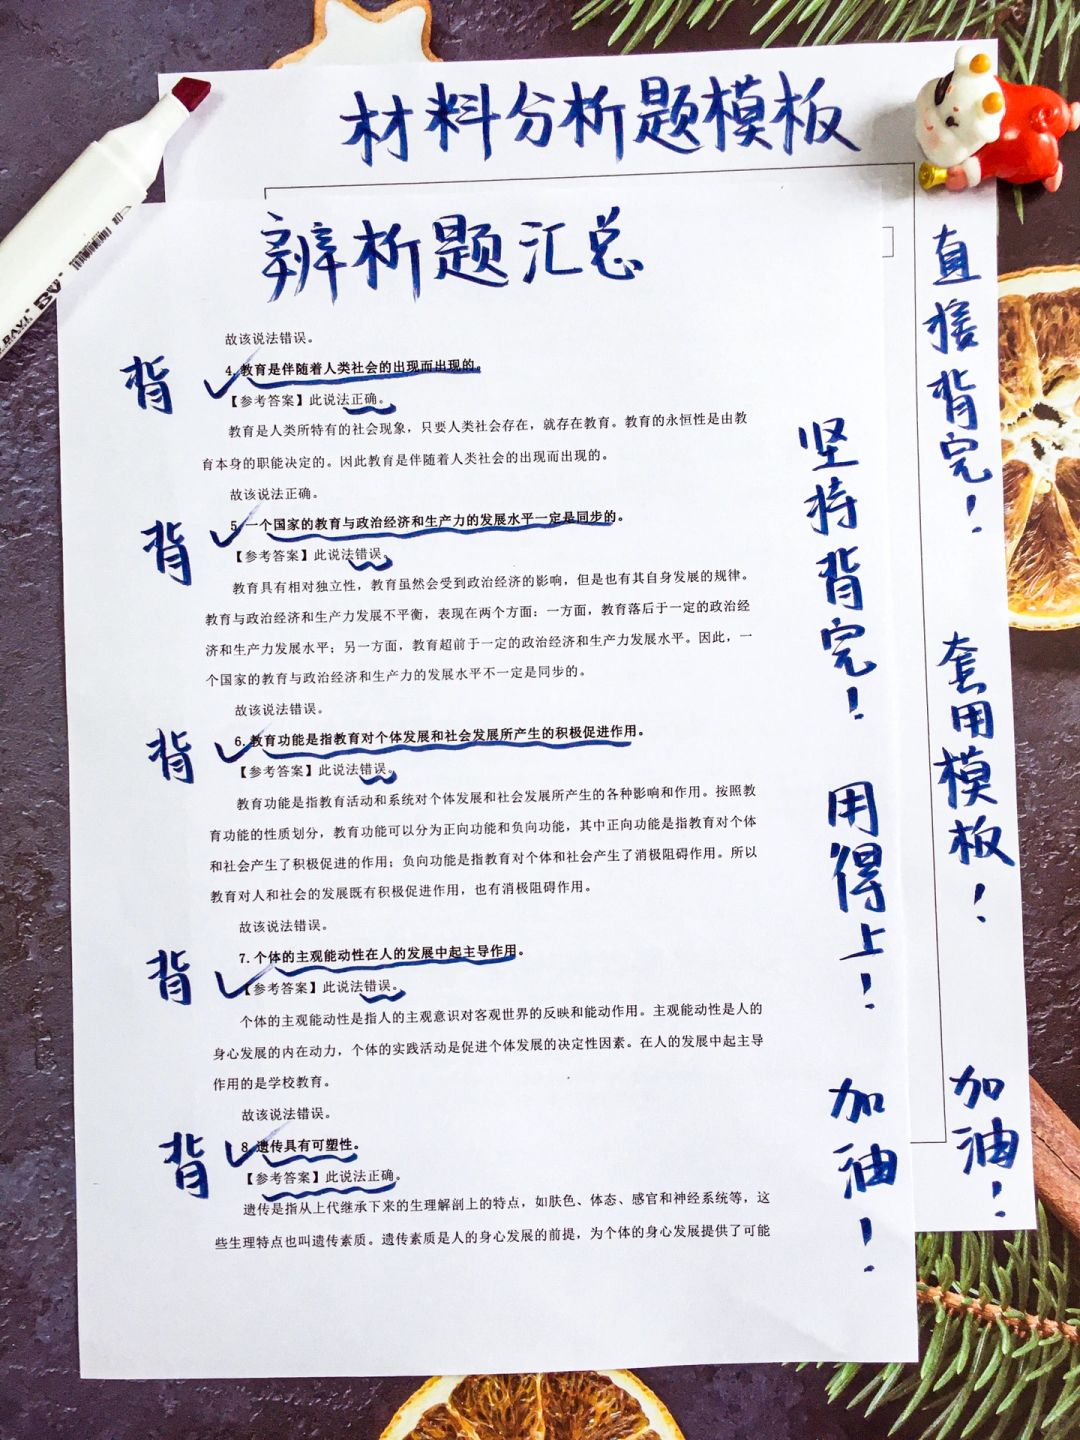 材料分析题模板
辨析题汇总
故该说法错误。
背
4.教育是伴随着人类社会的出现而出现的。
【参考答案】此说法正确。
教育是人类所特有的社会现象，只要人类社会存在，就存在教育。教育的永恒性是由教
育本身的职能决定的。因此教育是伴随着人类社会的出现而出现的。
故该说法正确。
背
5.一个国家的教育与政治经济和生产力的发展水平一定是同步的。
【参考答案】此说法错误。
教育具有相对独立性，教育虽然会受到政治经济的影响，但是也有其自身发展的规律。
教育与政治经济和生产力发展不平衡，表现在两个方面：一方面，教育落后于一定的政治经
济和生产力发展水平；另一方面，教育超前于一定的政治经济和生产力发展水平。因此，一
个国家的教育与政治经济和生产力的发展水平不一定是同步的。
故该说法错误。
背
6.教育功能是指教育对个体发展和社会发展所产生的积极促进作用。
【参考答案】此说法错误。
教育功能是指教育活动和系统对个体发展和社会发展所产生的各种影响和作用。按照教
育功能的性质划分，教育功能可以分为正向功能和负向功能，其中正向功能是指教育对个体
和社会产生了积极促进的作用；负向功能是指教育对个体和社会产生了消极阻碍作用。所以
教育对人和社会的发展既有积极促进作用，也有消极阻碍作用。
故该说法错误。
背
7.个体的主观能动性在人的发展中起主导作用。
【参考答案】此说法错误。
个体的主观能动性是指人的主观意识对客观世界的反映和能动作用。主观能动性是人的
身心发展的内在动力，个体的实践活动是促进个体发展的决定性因素。在人的发展中起主导
作用的是学校教育。
故该说法错误。
背
8.遗传具有可塑性。
【参考答案】此说法正确。
遗传是指从上代继承下来的生理解剖上的特点，如肤色、体态、感官和神经系统等，这
些生理特点也叫遗传素质。遗传素质是人的身心发展的前提，为个体的身心发展提供了可能
坚持背完！
用得上！
加油！
直接背完！
套用模板！
加油！